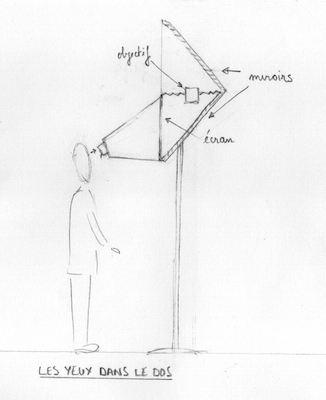 objectif
miroirs
écran
LES YEUX DANS LE DOS